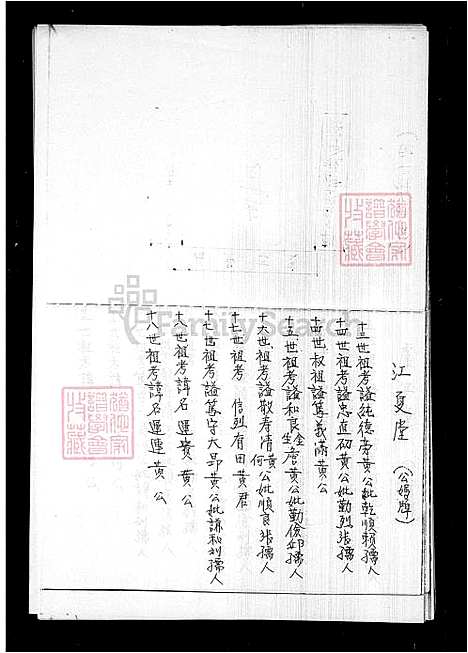 江夏堂 （公媽牌）
十三世祖考諡純德旁黃公妣乾順賴孺人
十四世祖考諡忠直砌黃公妣勤烈張孺人
十四世叔祖諡篤義 黃公
十五世祖考諡和良 詹黃公妣勤儉邱孺人
十六世祖考諡敬寿清黃公妣順良張孺人
十七世祖考 信烈有田黃君
十七世祖考諡篤守大昂黃公妣謙和刘孺人
十八世祖考諱名運賽 黃公
十八世祖考諱名運連 黃公
FamilySearch
譜學會
收藏
譜學會
收藏